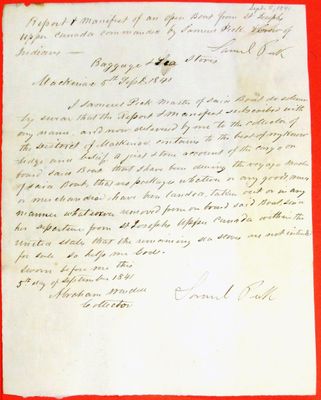 Sept. 5, 1841
Report & Manifest of an open Boat from St Josephs
Upper Canada commanded by Samuel Peck
Indians —
Samuel Peck
Baggage & Sea Stores
Mackinac 5th Sept. 1841
I Samuel Peck Master of said Boat do solemn
ly swear that the Report & Manifest subscribed with
my name, and now delivered by me to the collector of
the District of Mackinac contains to the best of my know
ledge and belief, a just & true account of the cargo on
board said Boat that there have been during the voyage
of said Boat, that no packages whatever or any goods wares
or merchandise have been landed, taken out or in any
manner whatsoever removed from on board said Boat since
her departure from St Josephs Upper Canada within the
United States that the remaining sea stores are not intended
for sale So help me God.
Sworn before me this
5th day of September 1841
Abraham Wendell
Collector
Samuel Peck